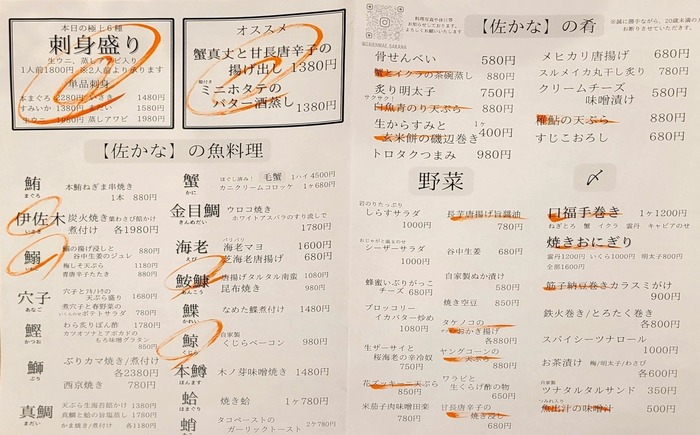 本日の極上6種
刺身盛り
生ウニ、蒸しアワビ入り
1人前1800円 ※2人前より承ります
単品刺身
本まぐろ 2280円 いさき 1480円
すみいか 1380円 まだい 1580円
生ウニ 1980円 蒸しアワビ 1980円
オススメ
蟹真丈と甘長唐辛子の
揚げ出し 1380円
殻付き
ミニホタテの
バター酒蒸し 1380円
【佐かな】の魚料理
鮪 まぐろ
本鮪ねぎま串焼き
1本 880円
伊佐木 いさき
炭火焼き
煮付け 各1980円
鰯 いわし
鰯の揚げ浸しと
谷中生姜のジュレ
梅しそ天ぷら 1180円
青唐辛子たたき 880円
穴子 あなご
天ぷら盛り 1680円
煮穴子と春野菜の
ポテトサラダ 780円
鰹 かつお
わら炙りぽん酢 1780円
カツオツナとアボカドの
もろ味噌グラタン
850円
鰤 ぶり
ぶりカマ焼き/煮付け
各2380円
西京焼き 780円
真鯛 まだい
天ぷら生海苔餡かけ 1380円
真鯛と蛤の旨塩蒸し 1780円
かま焼き/煮付け 各1180円
蟹 かに
ほぐし済み! 毛蟹 1ハイ4500円
カニクリームコロッケ 1ヶ680円
金目鯛 きんめだい
ウロコ焼き
ホワイトアスパラのすり流しで
1780円
海老 えび
パリパリ
海老マヨ 1600円
芝海老唐揚げ 680円
鮟鱇 あんこう
唐揚げタルタル南蛮 1080円
昆布焼き 980円
鰈 かれい
なめた鰈煮付け 1480円
鯨 くじら
自家製
くじらベーコン 980円
本鱒 ほんます
木ノ芽味噌焼き 1480円
蛤 はまぐり
焼き蛤 1ヶ780円
蛸
タコペーストの
ガーリックトースト 2ヶ780円
料理写真や休日等
お知らせしております。
よろしくお願いします
【佐かな】の肴
※誠に勝手ながら、20歳未満の
お断りさせていただき
骨せんべい 580円
蟹とイクラの茶碗蒸し 880円
炙り明太子 750円
サクサクっ
白魚青のり天ぷら 880円
生からすみと
玄米餅の磯辺巻き 1ヶ400円
トロタクつまみ 980円
メヒカリ唐揚げ 680円
スルメイカ丸干し炙り 780円
クリームチーズ 580円
味噌漬け
稚鮎の天ぷら 880円
すじこおろし 680円
野菜
岩のりたっぷり
しらすサラダ
1000円
おじゃがと温玉のせ
シーザーサラダ
1000円
蜂蜜いぶりがっこ
チーズ 680円
ブロッコリー
イカバター炒め
1080円
生ザーサイと
桜海老の辛冷奴
750円
花ズッキーニ天ぷら
850円
米茄子肉味噌田楽
780円
長芋唐揚げ旨醤油
780円
谷中生姜 680円
自家製ぬか漬け
580円
焼き空豆 850円
タケノコの
おかき揚げ
880円
ヤングコーンの
天ぷら
850円
ワラビと
生くらげ酢の物
650円
甘長唐辛子の
焼き浸し 680円
〆
口福手巻き 1ヶ1200円
ねぎとろ 蟹 イクラ 雲丹 キャビアのせ
焼きおにぎり
雲丹1200円 いくら1000円 明太子800円
全部1600円
筋子納豆巻きカラスミがけ
900円
鉄火巻き/とろたく巻き
各800円
スパイシーツナロール
1000円
お茶漬け 梅/明太子/わさび
各600円
自家製
ツナタルタルサンド 350円
つみれ入り
魚出汁の味噌汁 500円